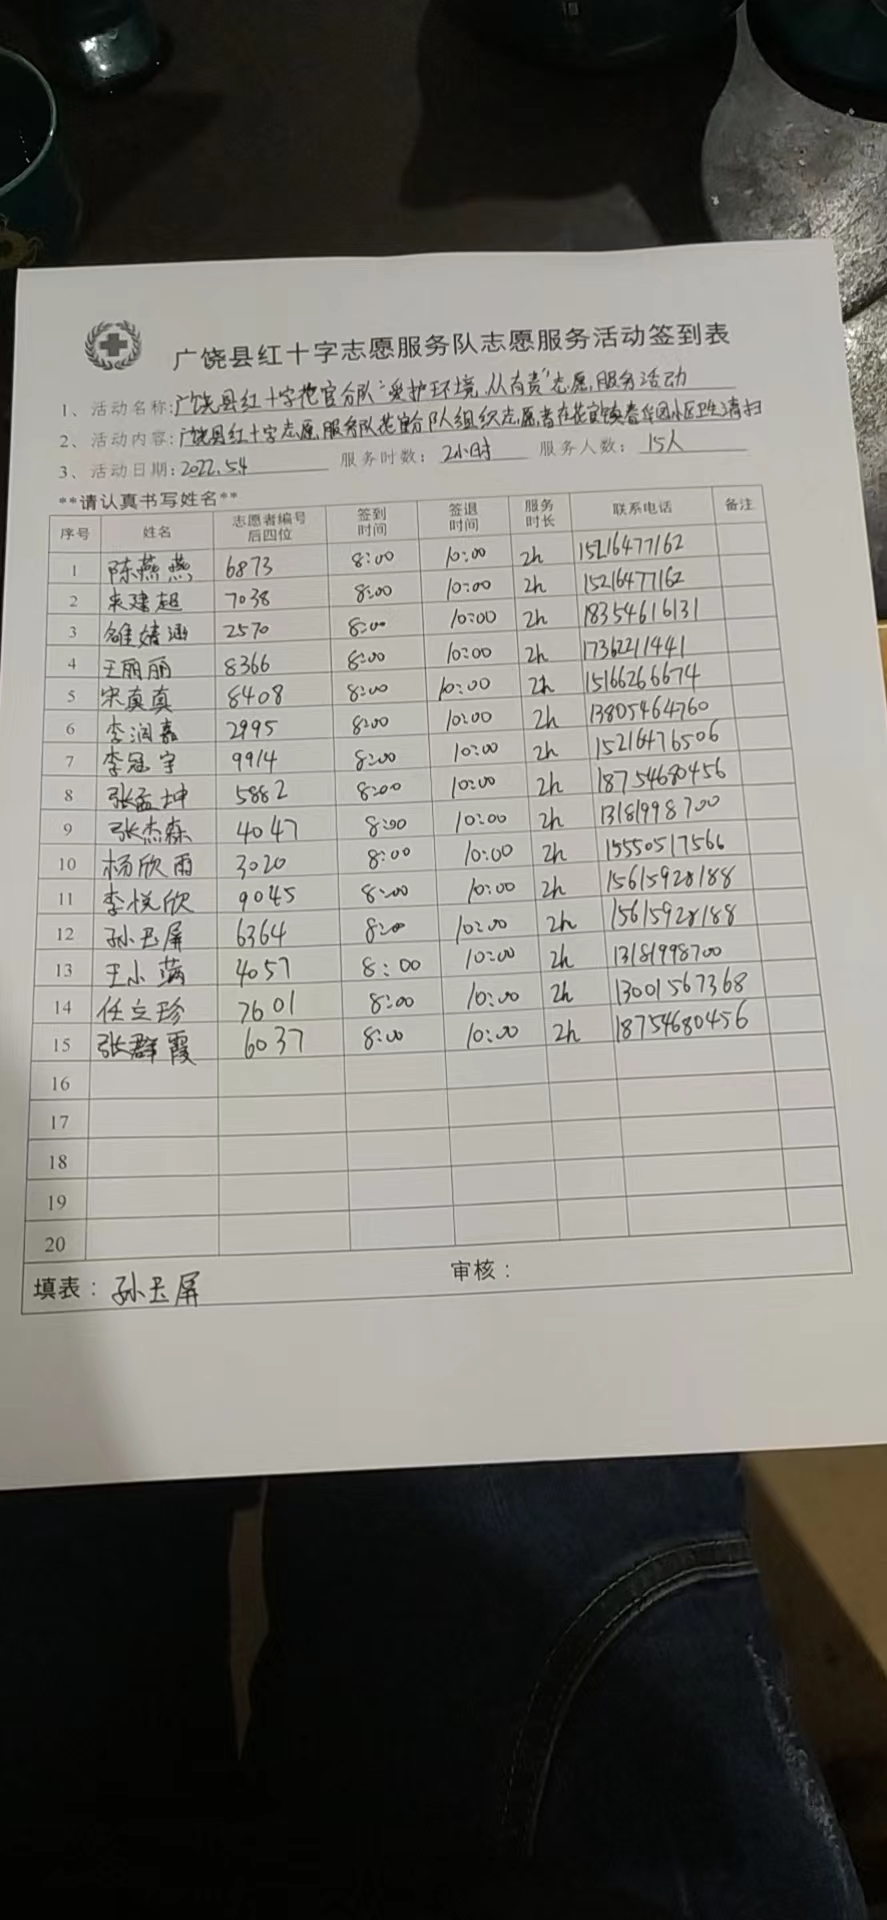 广饶县红十字志愿服务队志愿服务活动签到表
1、活动名称:广饶县红十字花官分队“爱护环境,从有责”志愿服务活动
2、活动内容:广饶县红十字志愿服务队花官分队组织志愿者在花官镇春华园小区卫生清扫
3、活动日期:2022.5.4 服务时数:2小时 服务人数:15人
**请认真书写姓名**
序号 姓名 志愿者编号后四位 签到时间 签退时间 服务时长 联系电话 备注
1 陈燕燕 6873 8:00 10:00 2h 15216477162
2 宋建超 7038 8:00 10:00 2h 15216477162
3 雒婧涵 2570 8:00 10:00 2h 18354616131
4 王丽丽 8366 8:00 10:00 2h 17362211441
5 宋真真 8408 8:00 10:00 2h 15166266674
6 李润嘉 2995 8:00 10:00 2h 13805464760
7 李冠宇 9914 8:00 10:00 2h 15216476506
8 张孟坤 5882 8:00 10:00 2h 18754680456
9 张杰森 4047 8:00 10:00 2h 13181998700
10 杨欣雨 3020 8:00 10:00 2h 15550517566
11 李悦欣 9045 8:00 10:00 2h 15615928188
12 孙玉屏 6364 8:00 10:00 2h 15615928188
13 王小满 4057 8:00 10:00 2h 13181998700
14 任立珍 7601 8:00 10:00 2h 13001567368
15 张群霞 6037 8:00 10:00 2h 18754680456
16
17
18
19
20
填表:孙玉屏 审核: